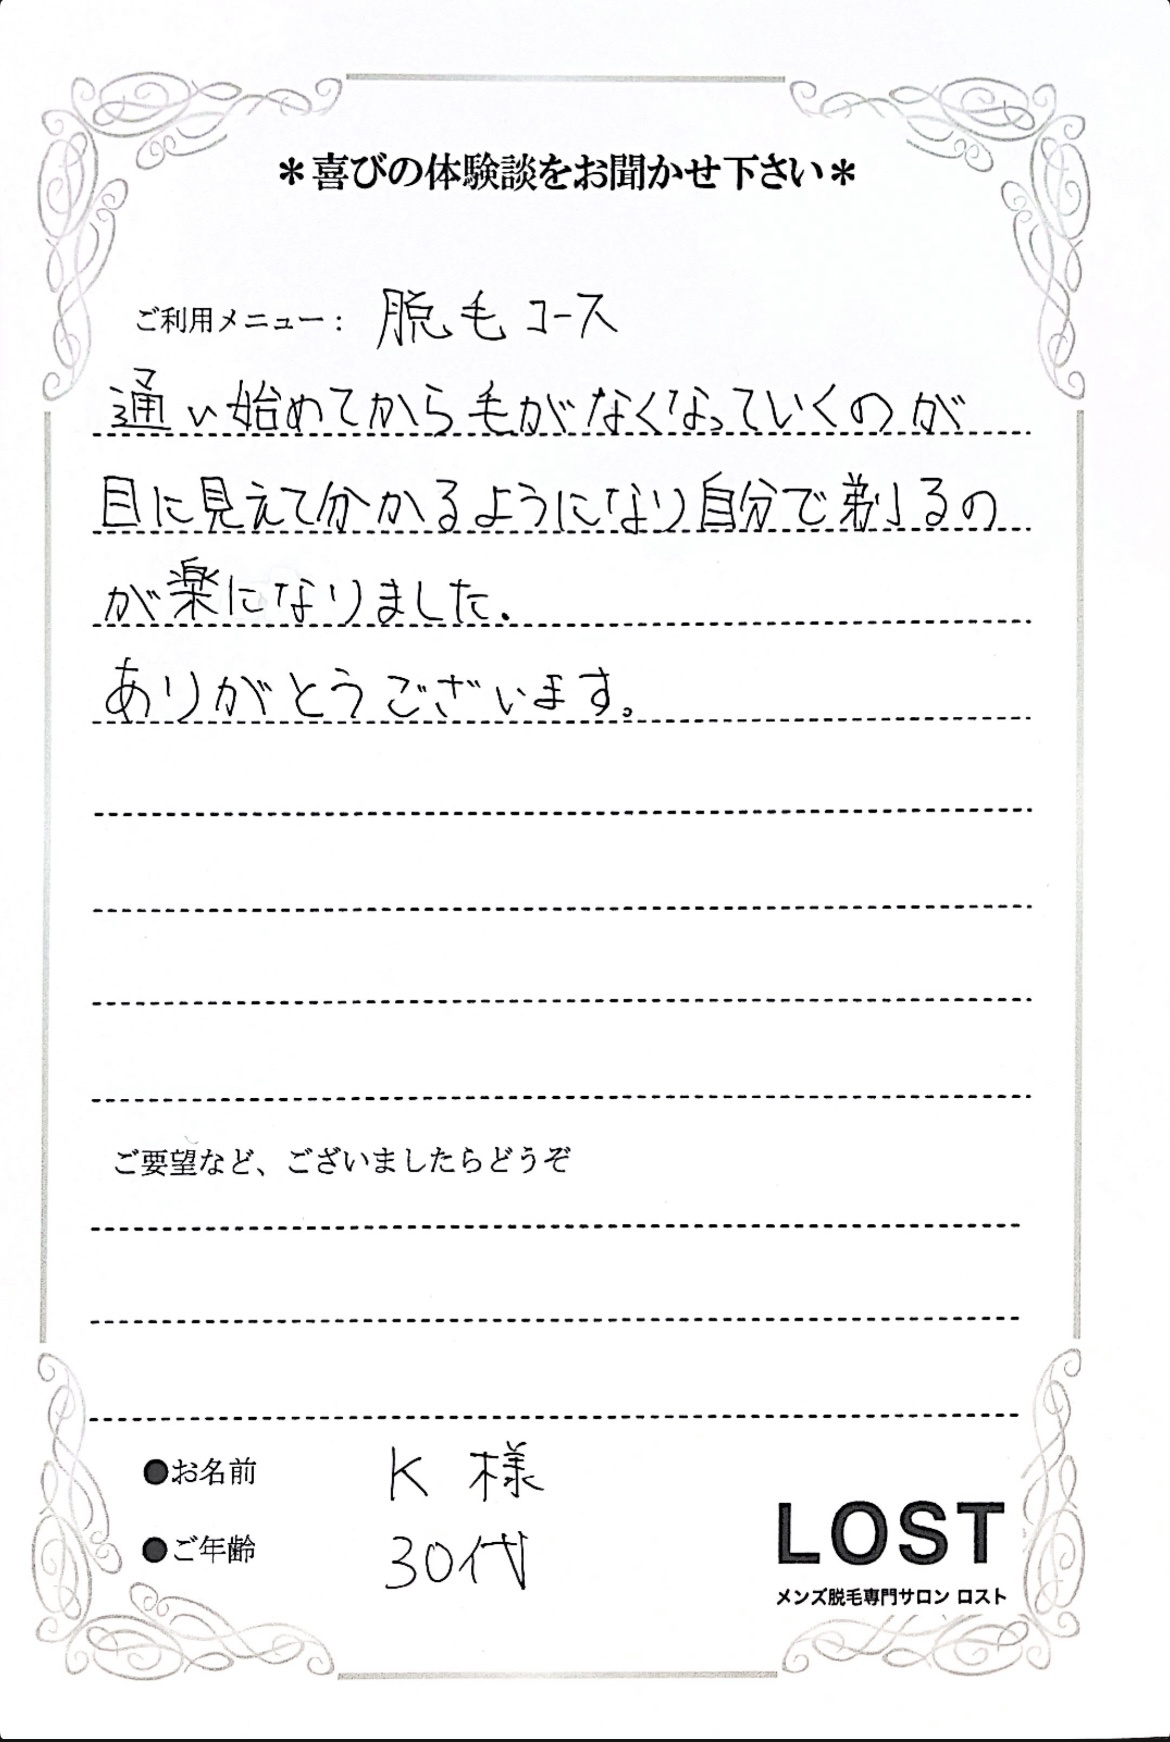 ＊喜びの体験談をお聞かせ下さい＊
ご利用メニュー： 脱毛コース
通い始めてから毛がなくなっていくのが
目に見えて分かるようになり自分で剃るの
が楽になりました.
ありがとうございます。
ご要望など、ございましたらどうぞ
●お名前 K 様
●ご年齢 30代
LOST
メンズ脱毛専門サロン ロスト